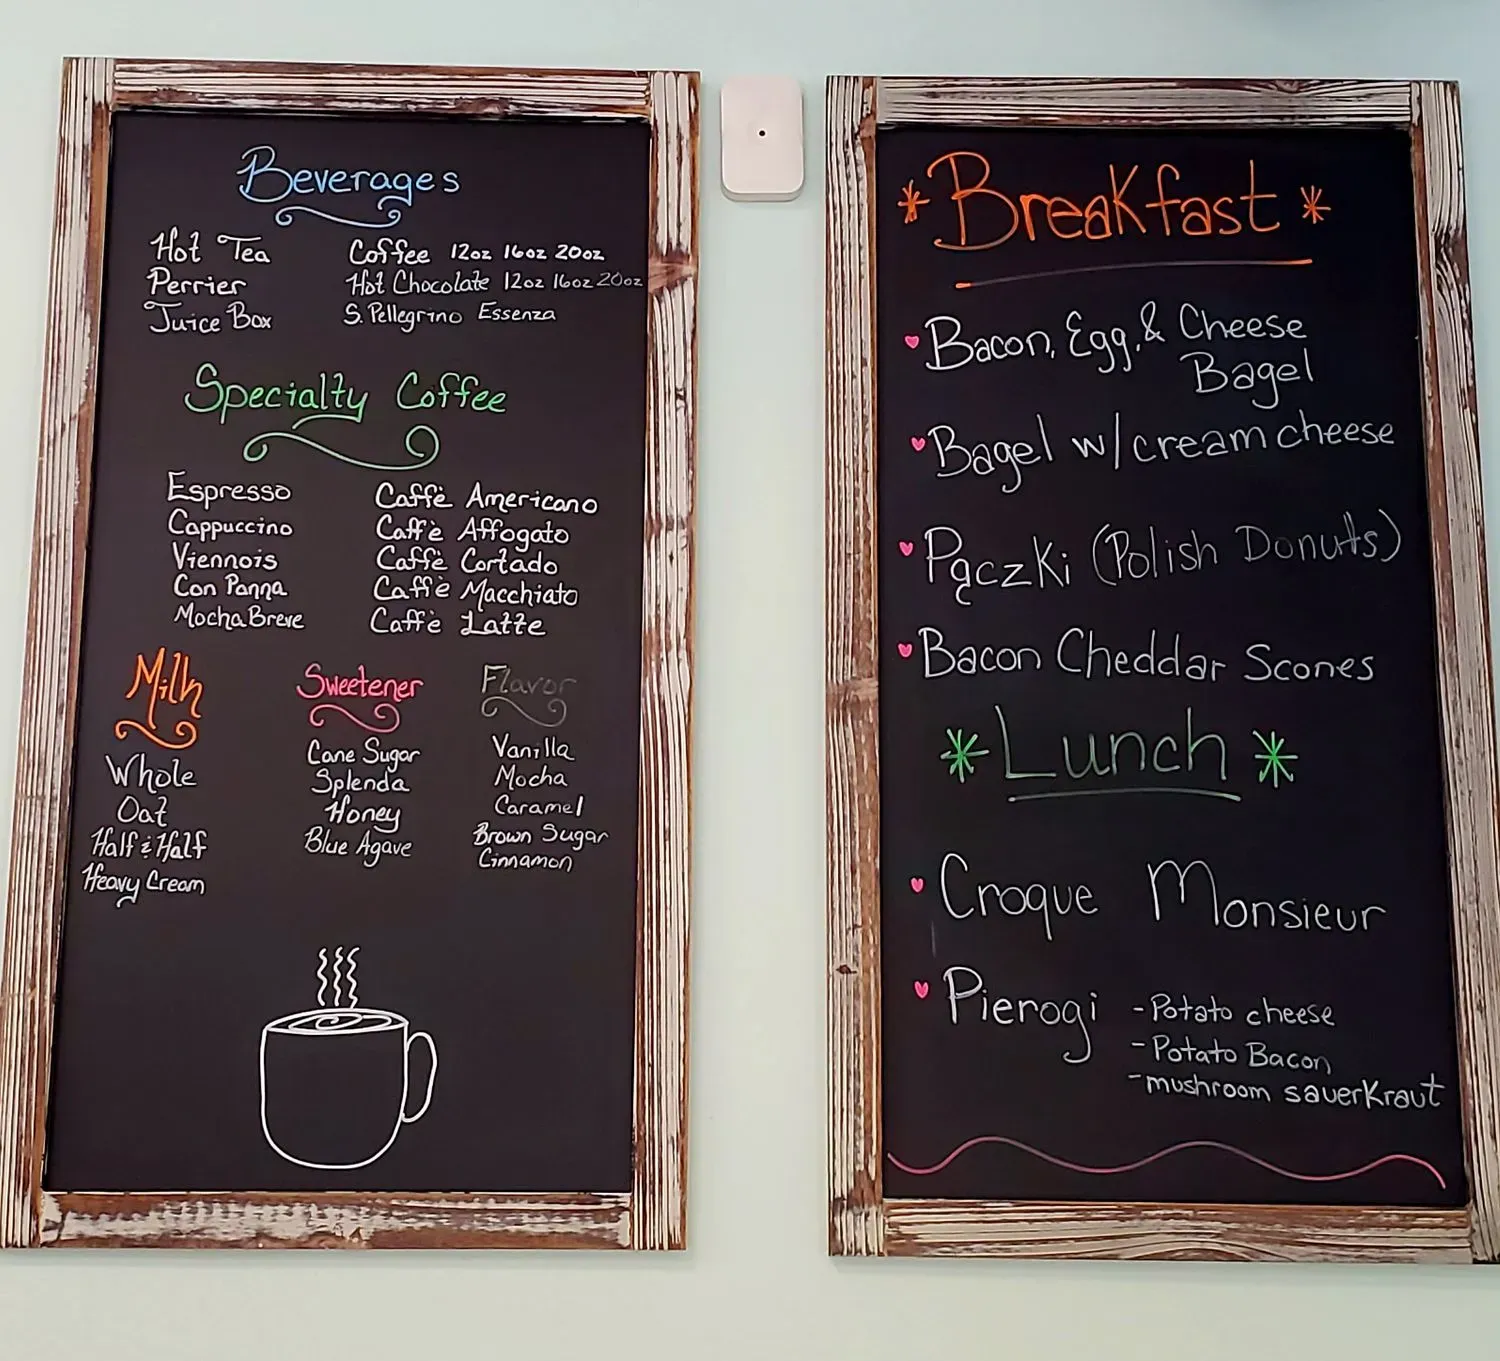 Beverages
Hot Tea
Perrier
Juice Box
Coffee 12oz 16oz 20oz
Hot Chocolate 12oz 16oz 20oz
S. Pellegrino Essenza
Specialty Coffee
Espresso
Cappuccino
Viennois
Con Panna
Mocha Breve
Caffè Americano
Caffè Affogato
Caffè Cortado
Caffè Macchiato
Caffè Latte
Milk
Whole
Oat
Half & Half
Heavy Cream
Sweetener
Cane Sugar
Splenda
Honey
Blue Agave
Flavor
Vanilla
Mocha
Caramel
Brown Sugar
Cinnamon
*Breakfast*
Bacon, Egg, & Cheese
Bagel
Bagel w/ cream cheese
Pączki (Polish Donuts)
Bacon Cheddar Scones
*Lunch*
Croque Monsieur
Pierogi - Potato cheese
- Potato Bacon
- mushroom sauerkraut